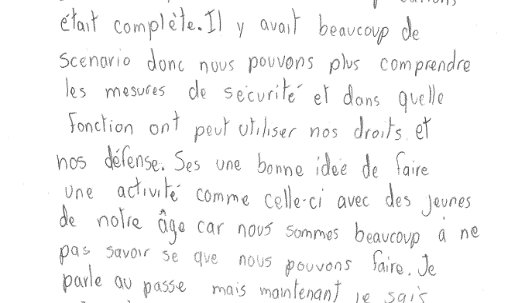 était complète. Il y avait beaucoup de
scenario donc nous pouvons plus comprendre
les mesures de sécurité et dans quelle
fonction ont peut utiliser nos droits et
nos défense. Ses une bonne idée de faire
une activité comme celle-ci avec des jeunes
de notre âge car nous sommes beaucoup à ne
pas savoir se que nous pouvons faire. Je
parle au passe mais maintenant je sais